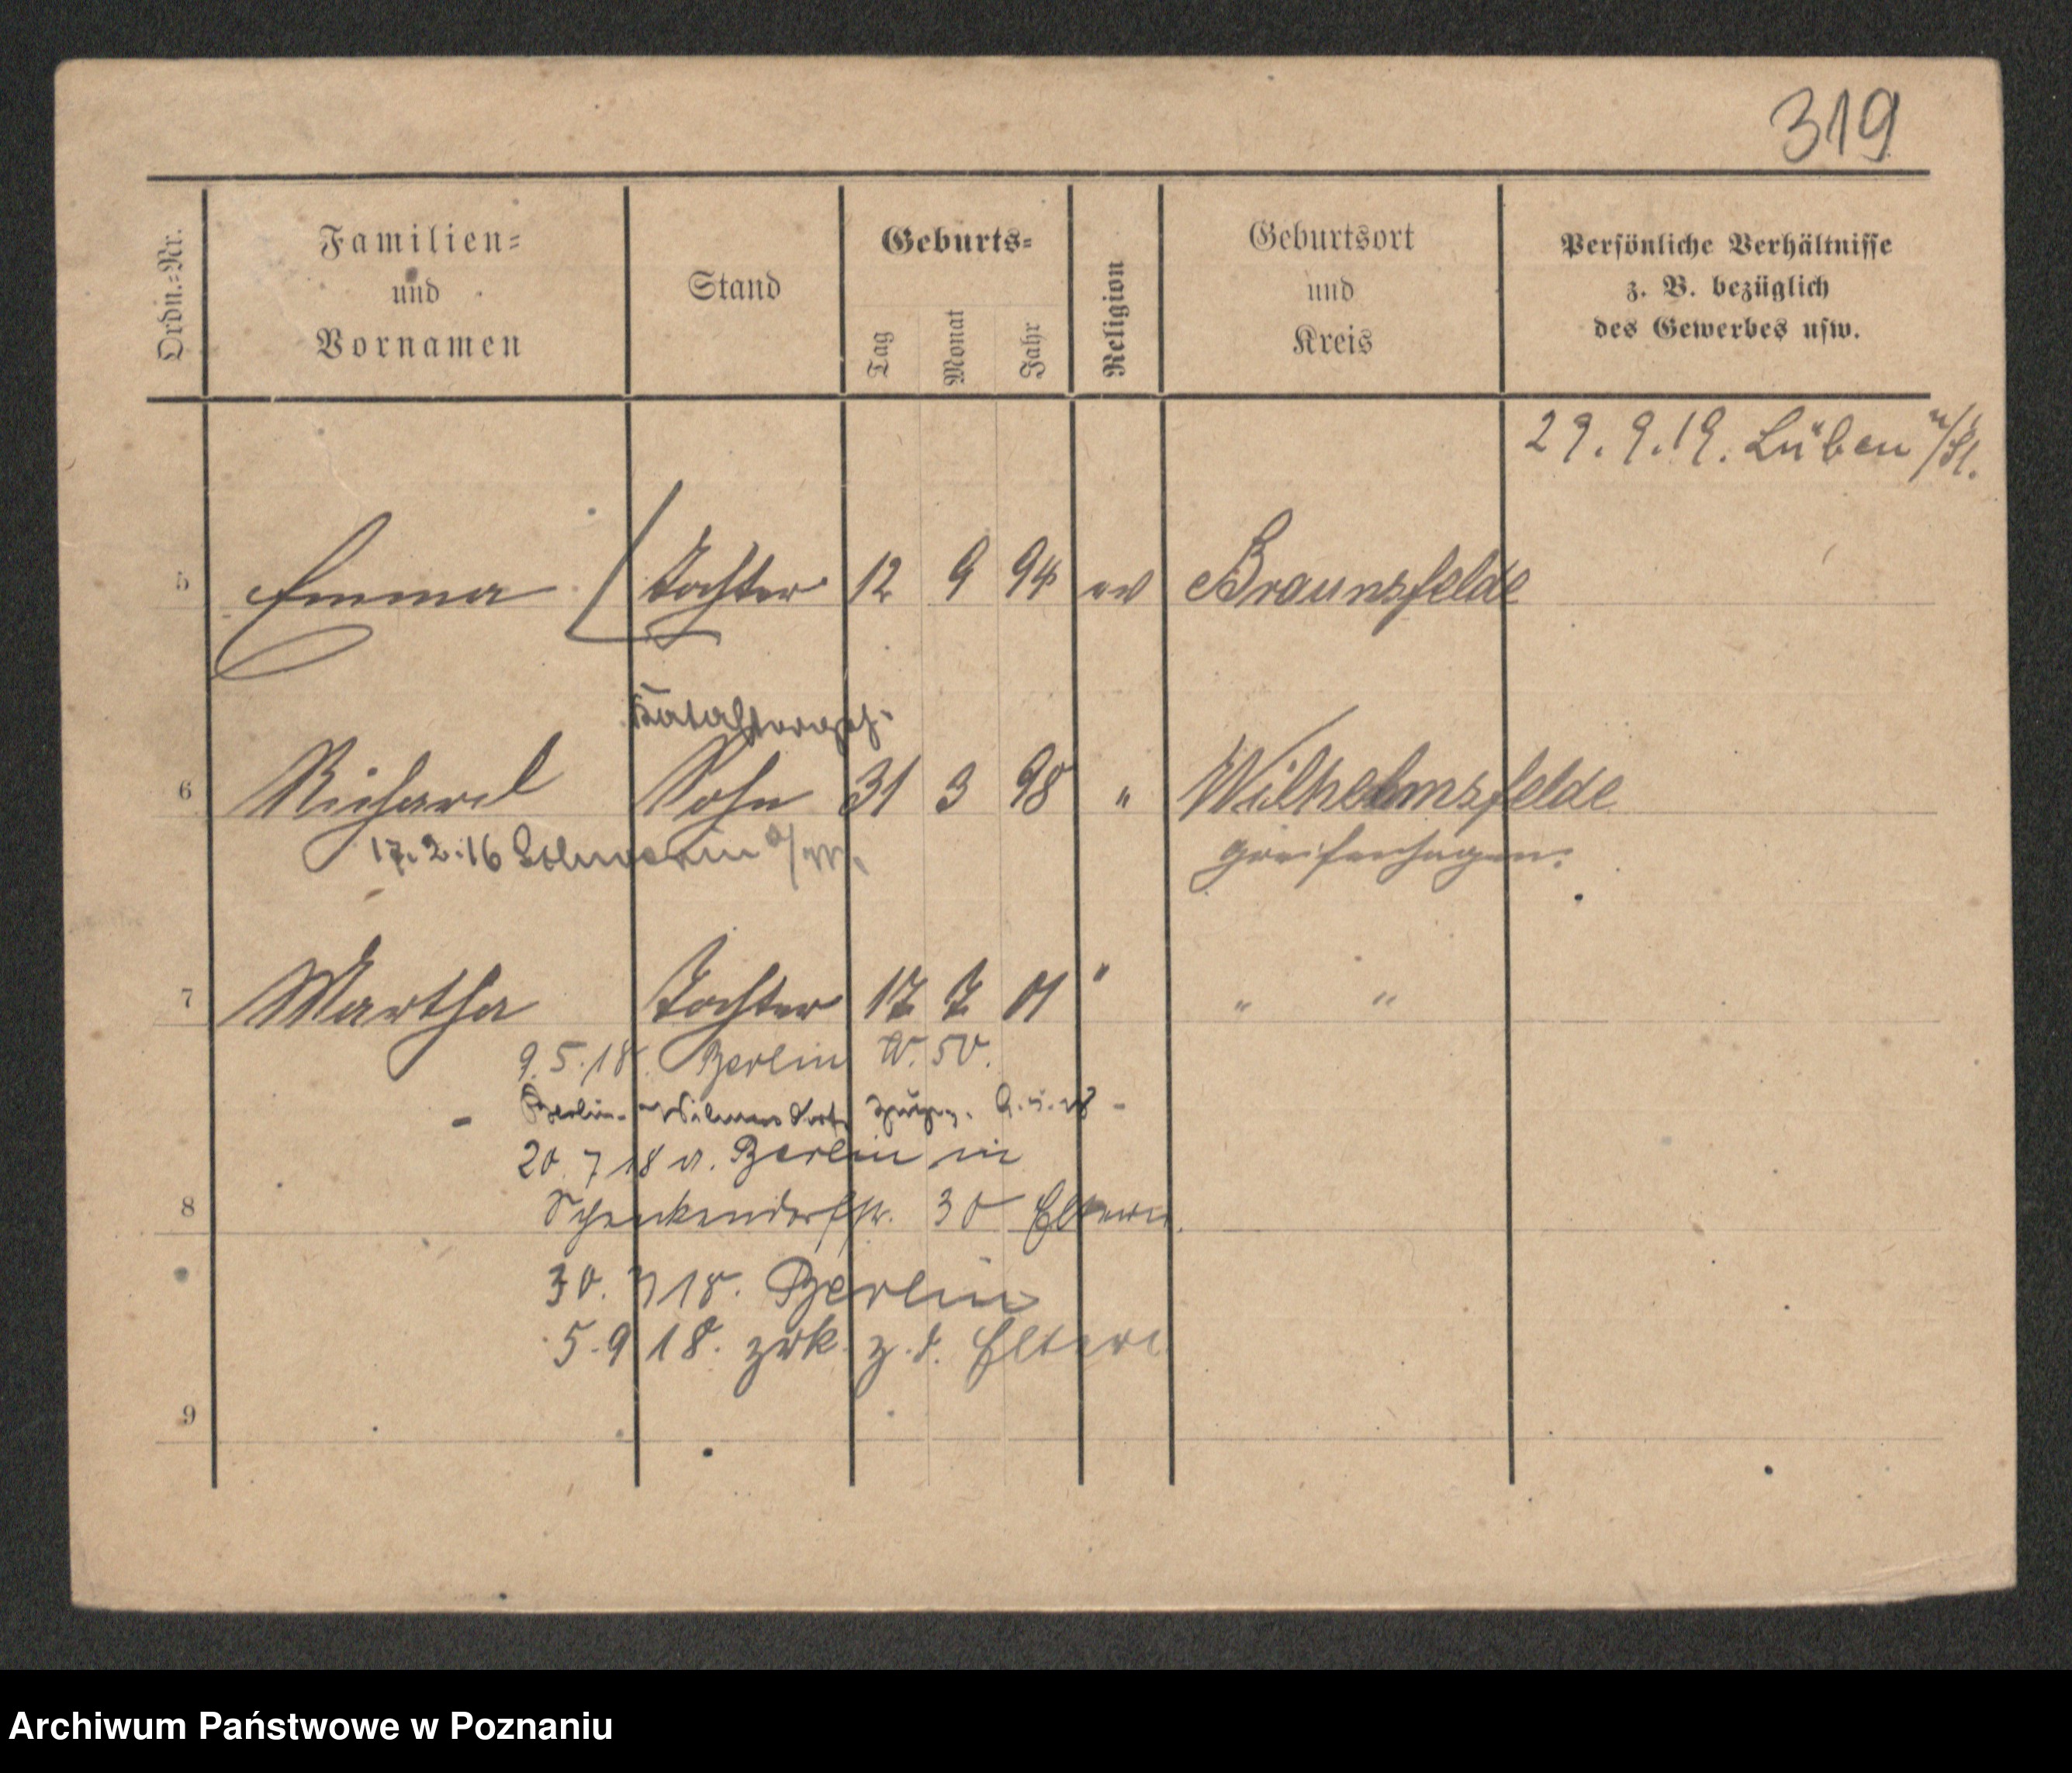 319
Ordn.=Nr.
Familien=
und
Vornamen
Stand
Geburts=
Tag
Monat
Jahr
Religion
Geburtsort
und
Kreis
Persönliche Verhältnisse
z. B. bezüglich
des Gewerbes usw.
29. 9. 19. Lüben
5 Emma Tochter 12 9 94 ev Braunsfelde
6 Richard Sohn 31 3 98 " Wilhelmsfelde
17. 2. 16 Schwerin a/W. Greifenhagen.
7 Martha Tochter 17 7 01 " " "
9. 5. 18. Berlin W. 50.
- Berlin-Wilmersdorf
20. 7 18 v. Berlin in
8 Schenkendorfstr. 30 Eltern.
30. 7 18. Berlin
5. 9 18. zrk. z. d. Eltern
9
Archiwum Państwowe w Poznaniu